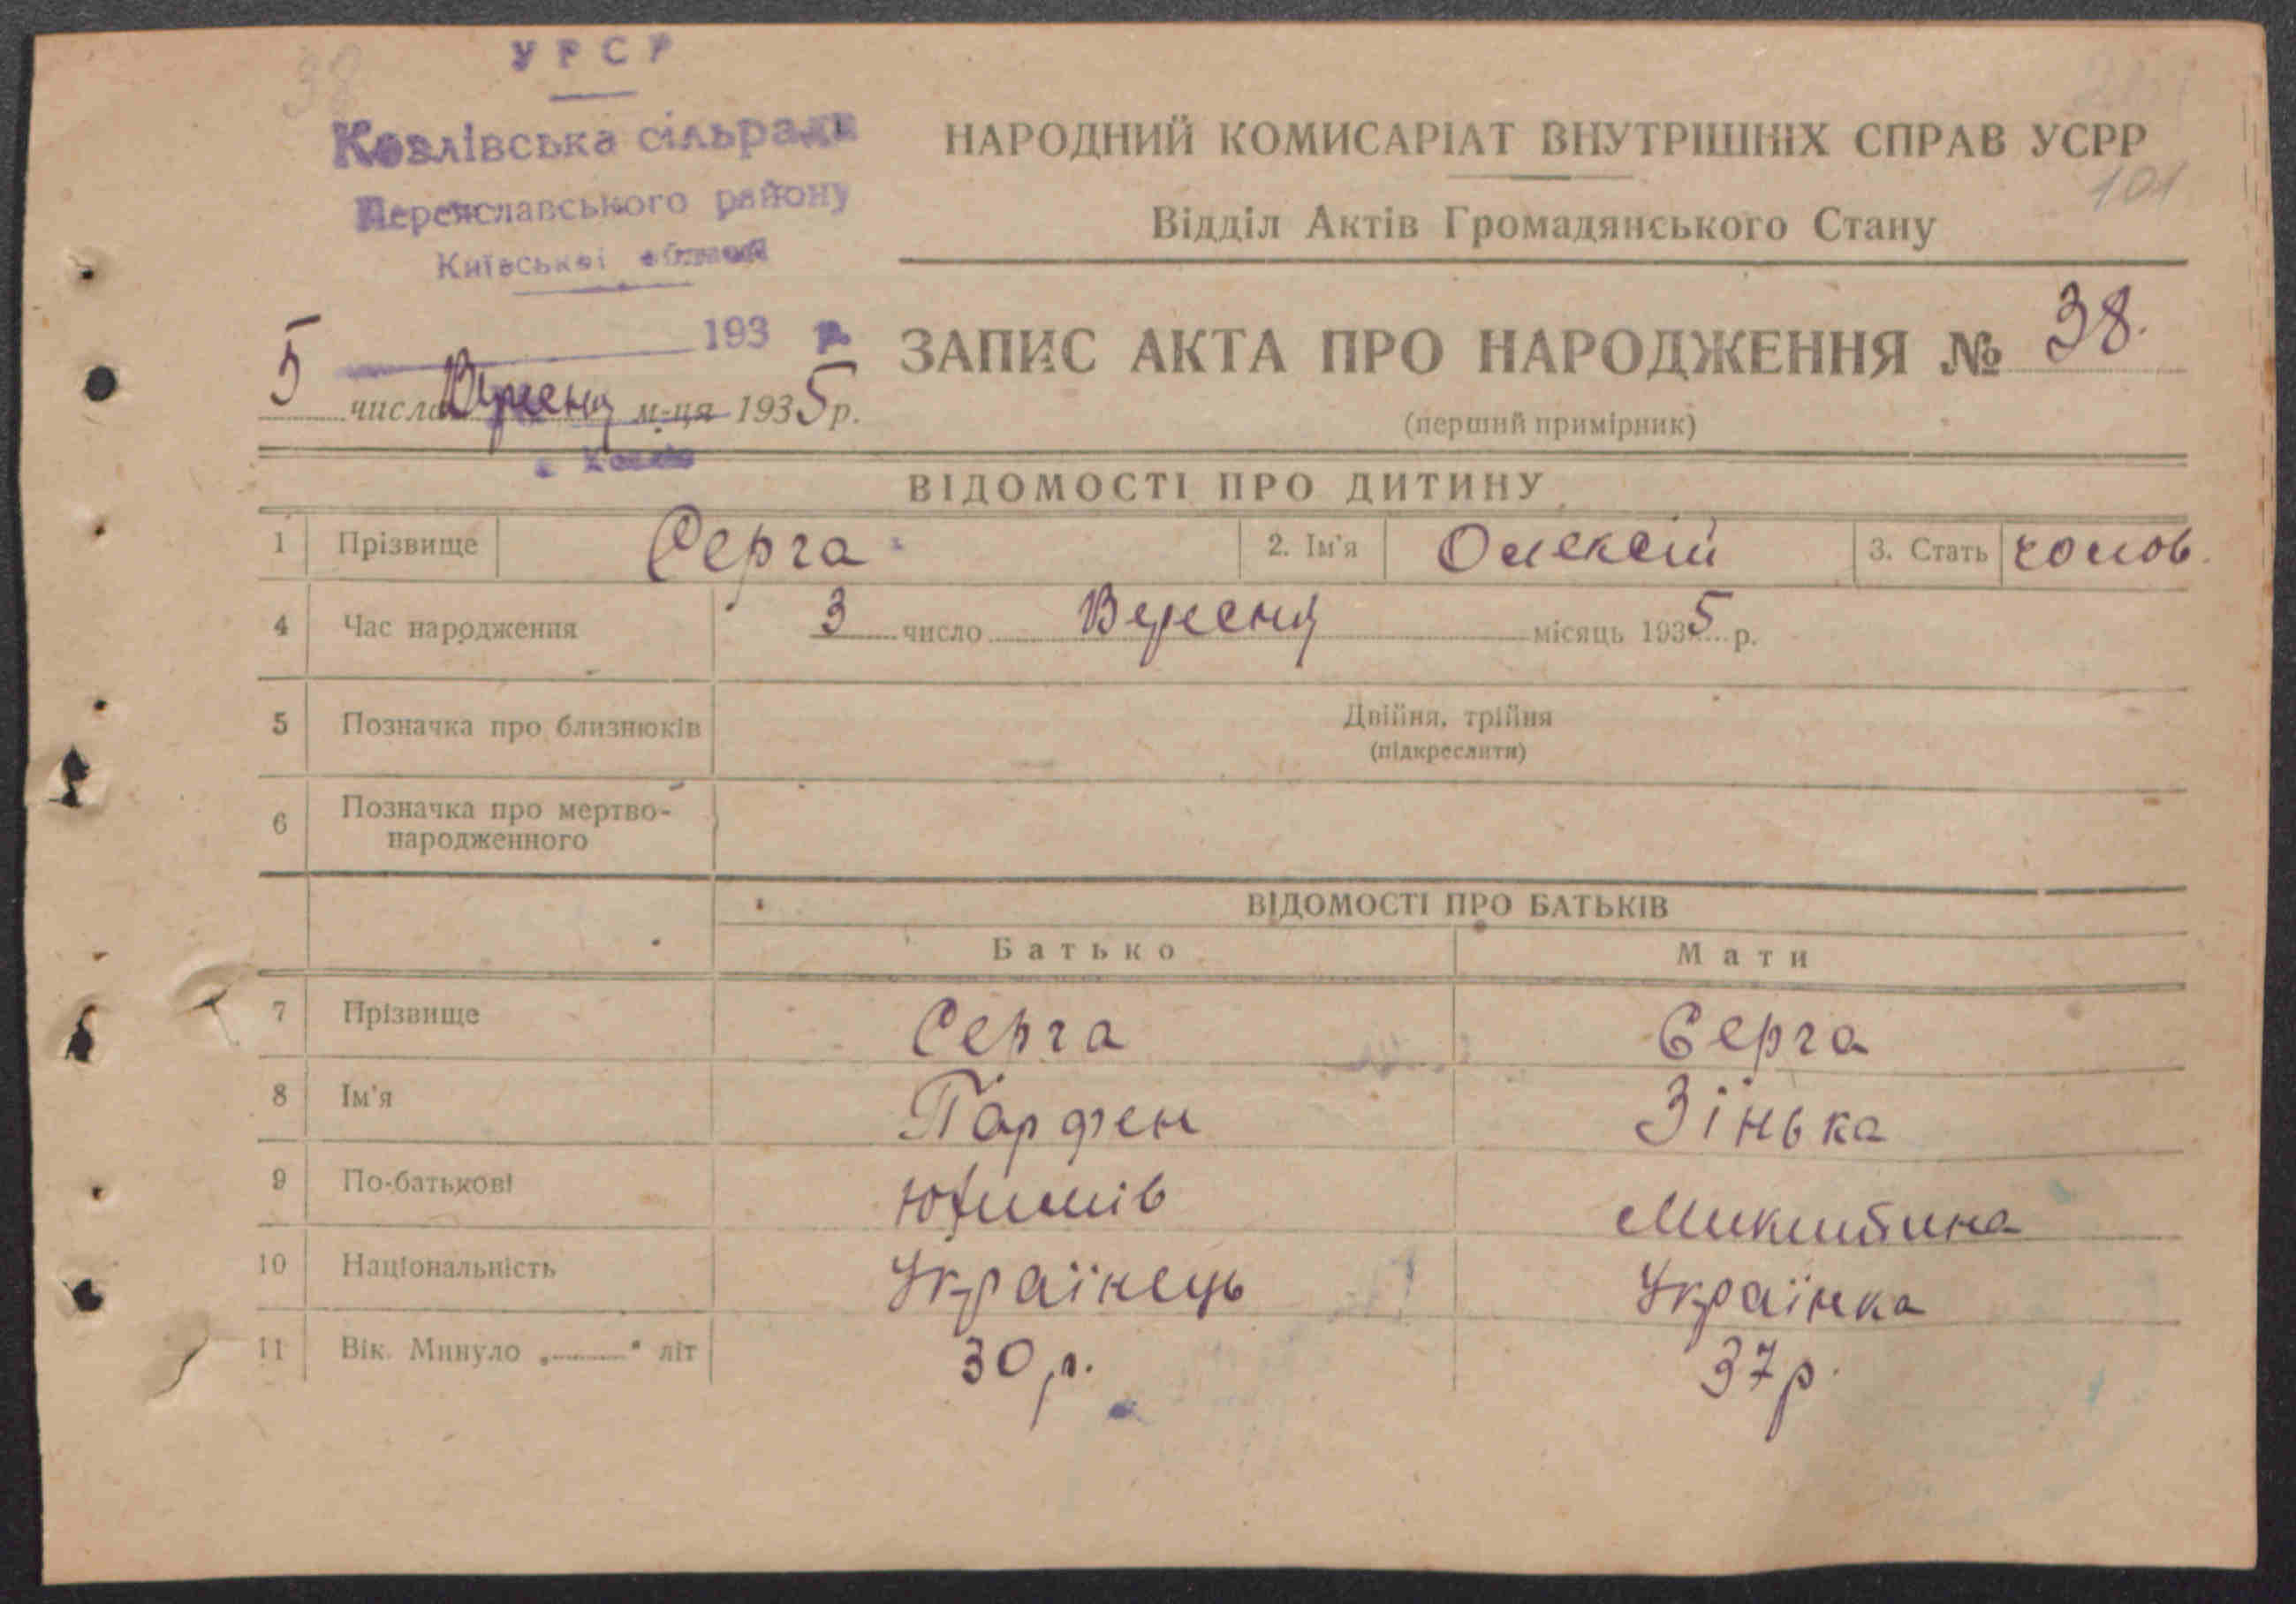 38
УРСР
Козлівська сільрада
Переяславського району
Київської області
193 р.
5 числа Вересня м-ця 1935 р.
с. Козлів
НАРОДНИЙ КОМИСАРІАТ ВНУТРІШНІХ СПРАВ УСРР
101
Відділ Актів Громадянського Стану
ЗАПИС АКТА ПРО НАРОДЖЕННЯ № 38.
(перший примірник)
ВІДОМОСТІ ПРО ДИТИНУ
1 Прізвище Серга 2. Ім'я Олексій 3. Стать чолов.
4 Час народження 3 число Вересня місяць 1935 р.
5 Позначка про близнюків Двійня, трійня
(підкреслити)
6 Позначка про мертво-
народженного
ВІДОМОСТІ ПРО БАТЬКІВ
Батько Мати
7 Прізвище Серга Серга
8 Ім'я Парфен Зінька
9 По-батькові Юхимів Микитина
10 Національність Українець Українка
11 Вік. Минуло „ “ літ 30 р. 37 р.